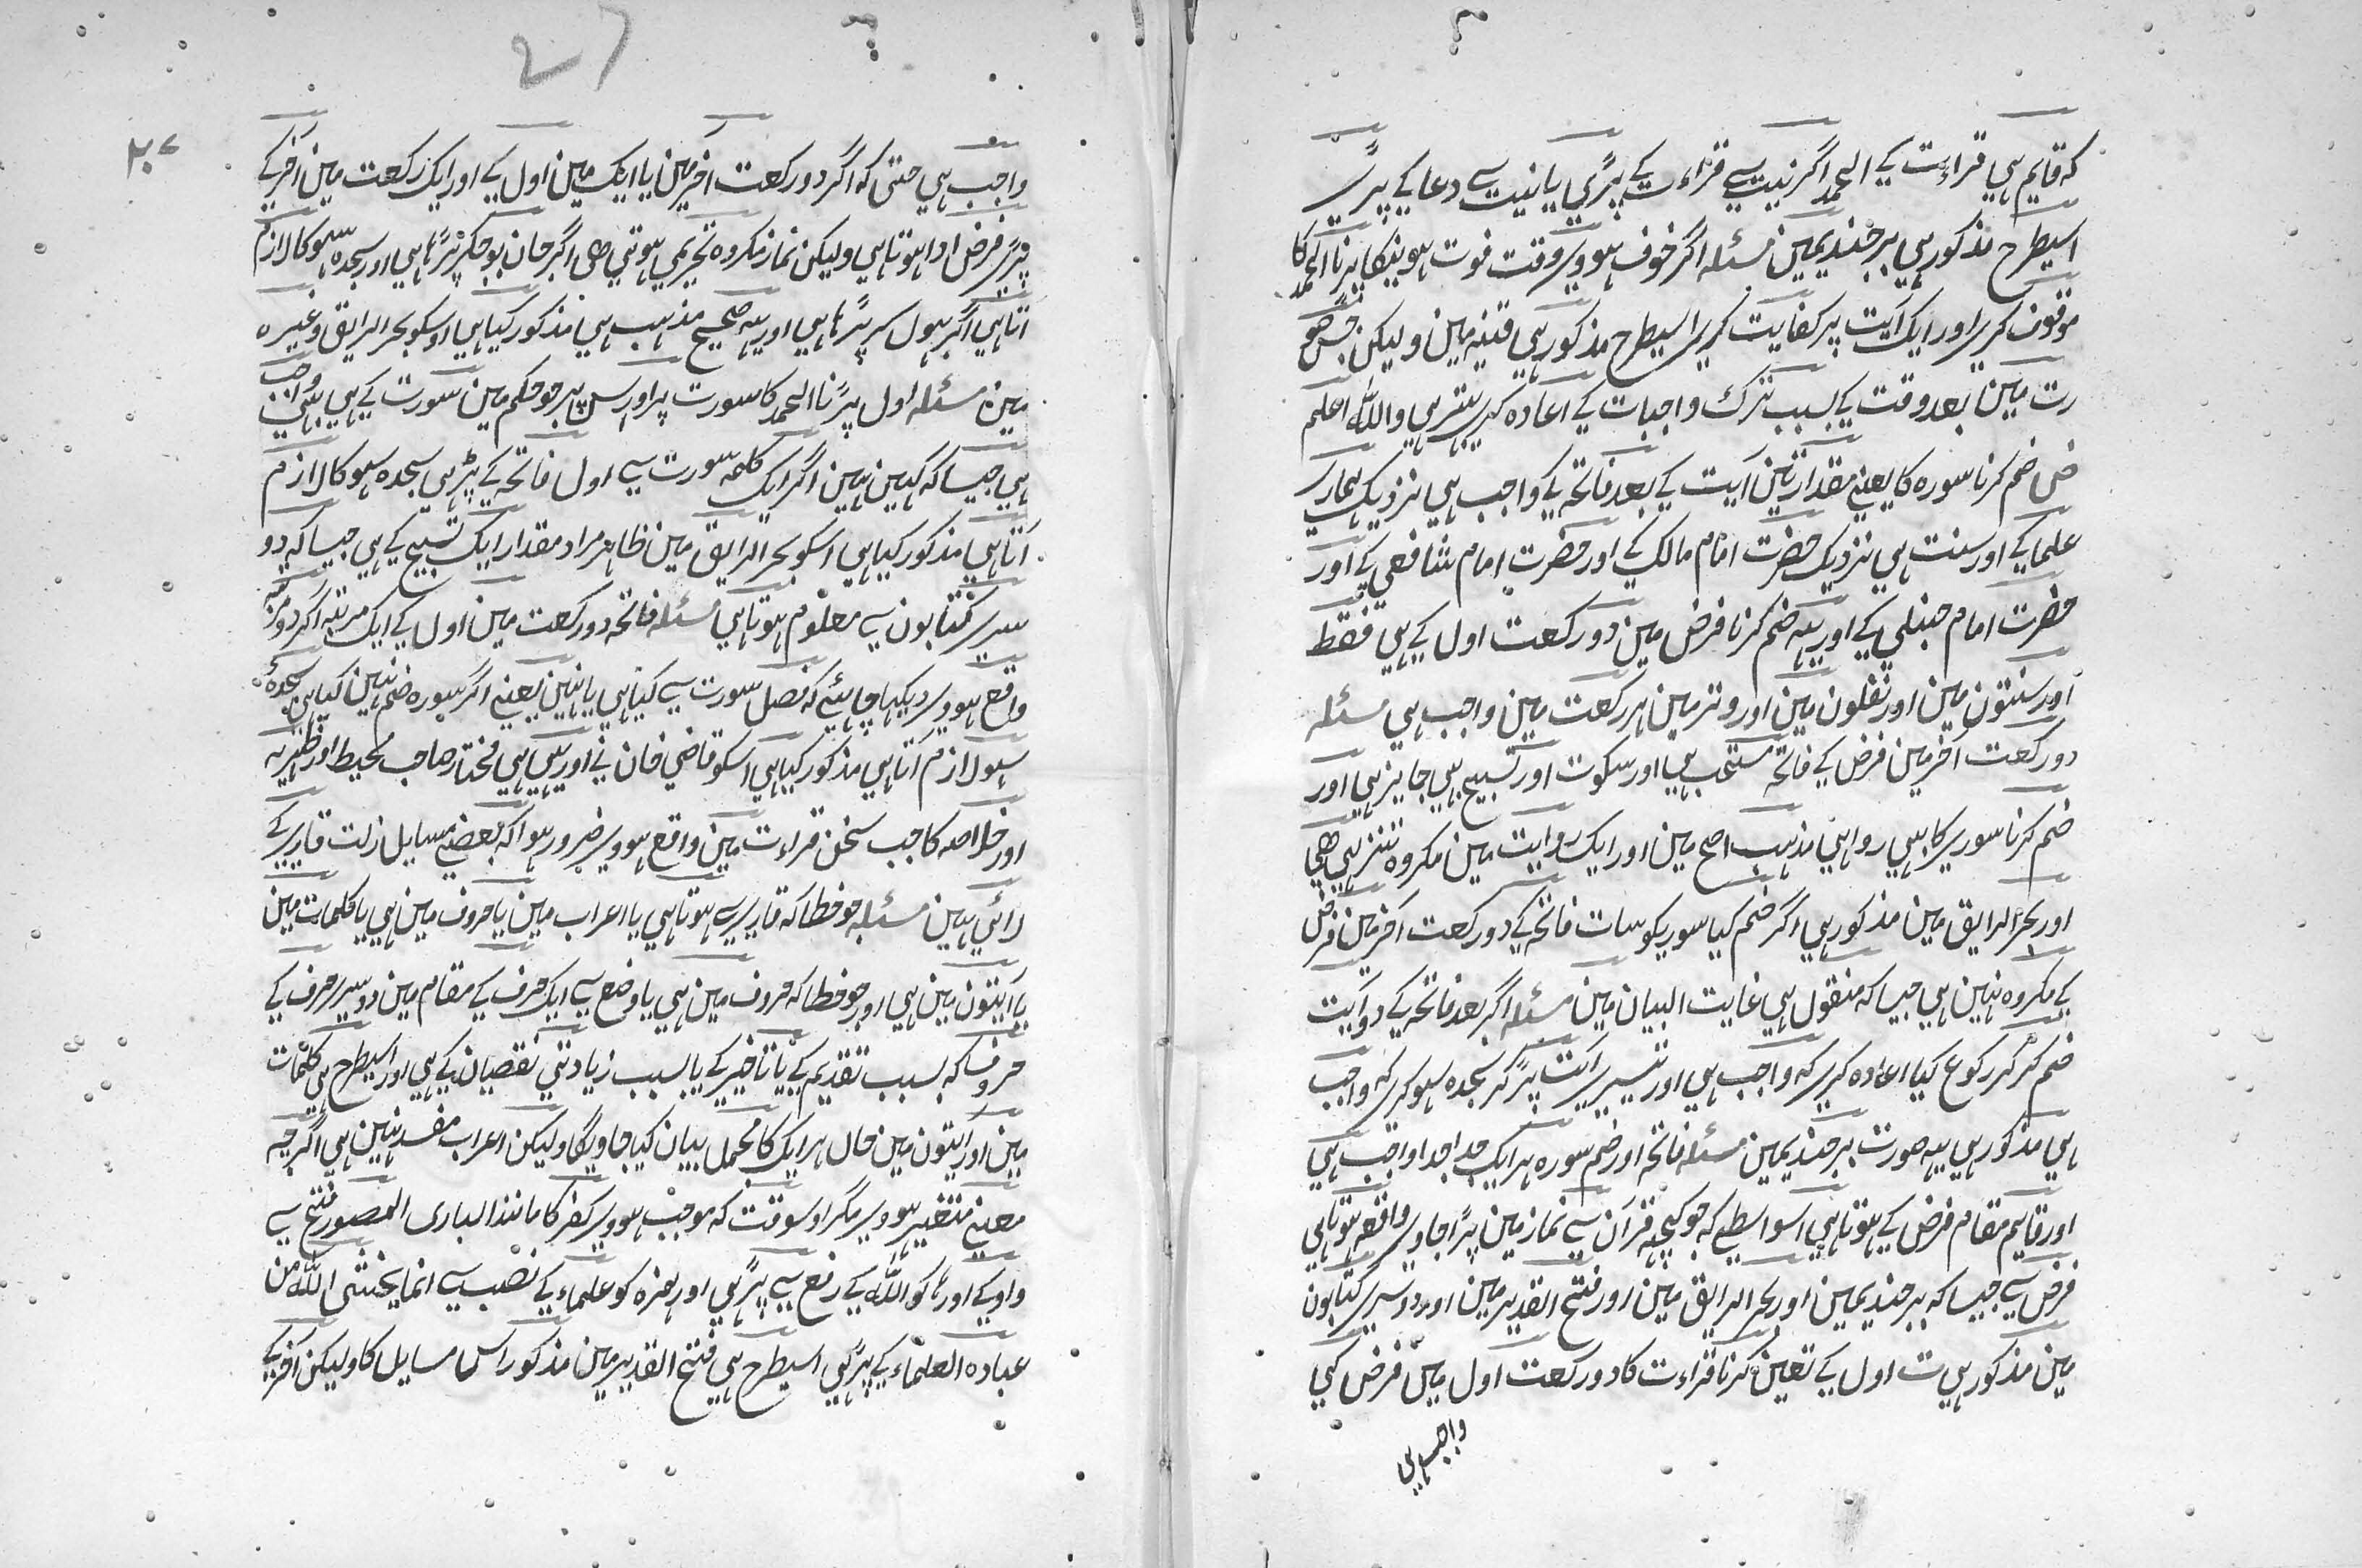 کہ قایم ہی قراءت کے الحمد اگر نیت سے قراءت کے پڑی یا نیت سے دعا کے پرے
اسیطرح مذکور ہی برجندیمین مسئلہ اگر خوف ہووے وقت فوت ہونیکا پرنا الحمد کا
موقوف کرے اور ایک آیت پر کفایت کرے اسیطرح مذکور ہی قنیہ مین ولیکن جس صو
رت مین بعد وقت کے بسبب ترک واجبات کے اعادہ کرے بہتر ہی واللہ اعلم
ضم کرنا سورہ کا یعنے مقدار تین آیت کے بعد فاتحہ کے واجب ہی نزدیک ہمارے
علما کے اور سنت ہی نزدیک حضرت امام مالک کے اور حضرت امام شافعی کے اور
حضرت امام حنبلی کے اور یہہ ضم کرنا فرض مین دو رکعت اول کے ہی فقط
اور سنتون مین اور نفلون مین اور وتر مین ہر رکعت مین واجب ہی مسئلہ
دو رکعت آخر مین فرض کے فاتحہ مستحب ہی اور سکوت اور تسبیح بہی جایز ہی اور
ضم کرنا سورے کا بہی روا ہی مذہب اصح مین اور ایک روایت مین مکروہ تنزیہی ھی
اور بحر الرایق مین مذکور ہی اگر ضم کیا سوریکو سات فاتحہ کے دو رکعت آخر مین فرض
کے مکروہ نہین ہی جیسا کہ منقول ہی غایت البیان مین مسئلہ اگر بعد فاتحہ کے دو آیت
ضم کر کر رکوع کیا اعادہ کرے کہ واجب ہی اور تیسرے آیت پڑ کر سجدہ سہو کرے کہ واجب
ہی مذکور ہی یہہ صورت برجندیمین مسئلہ فاتحہ اور ضم سورہ ہر ایک جدا جدا واجب ہی
اور قایم مقام فرض کے ہوتا ہی اسواسطے کہ جو کچہہ قرآن سے نماز مین پڑا جاوے واقع ہوتا ہی
فرض سے جیسا کہ برجندیمین اور بحر الرایق مین اور فتح القدیر مین اور دوسرے کتابون
مین مذکور ہی ت اول کے تعین کرنا قراءت کا دو رکعت اول مین فرض کی
واجب ہی
۲۰۷
27
واجب ہی حتی کہ اگر دو رکعت آخر مین یا ایک مین اول کے اور ایک رکعت مین آخر کے
پڑے فرض ادا ہوتا ہی ولیکن نماز مکروہ تحریمی ہوتی ھی اگر جان بوجکر پڑا ہی اور سجدہ سہو کا لازم
اتا ہی اگر بہول سے پڑا ہی اور یہہ صحیح مذہب ہی مذکور کیا ہی اوسکو بحر الرایق وغیرہ
مین مسئلہ اول پڑنا الحمد کا سورت پر اور اس پر جو حکم مین سورت کے ہی بہی واجب
ہی جیسا کہ کہین ہین اگر ایک کلمہ سورت سے اول فاتحہ کے پڑہی سجدہ سہو کا لازم
آتا ہی مذکور کیا ہی اسکو بحر الرایق مین ظاہر مراد مقدار ایک تسبیح کے ہی جیسا کہ دو
سرے کتابون سے معلوم ہوتا ہی مسئلہ فاتحہ دو رکعت مین اول کے ایک مرتبہ اگر دو مرتبہ
واقع ہووے دیکہا چاہئے کہ فصل سورت سے کیا ہی یا نہین یعنے اگر سورہ ضم نہین کیا ہی سجدہ
سہو لازم آتا ہی مذکور کیا ہی اسکو قاضی خان نے اور یہی ہی مختار صاحب محیط اور ظہیریہ
اور خلاصہ کا جب سخن قراءت مین واقع ہووے ضرور ہوا کہ بعضے مسایل زلت قاری کے
لائے ہین مسئلہ جو خطا کہ قاریسے ہوتا ہی یا اعراب مین یا حروف مین ہی یا کلمات مین
یا آیتون مین ہی اور جو خطا کہ حروف مین ہی یا وضع سے ایک حرف کے مقام مین دوسرے حرف کے
حروف کہ بسبب تقدیم کے یا تاخیر کے یا بسبب زیادتی نقصان کے ہی اور اسیطرح ہی کلمات
مین اور ایتون مین حال ہر ایک کا مجمل بیان کیا جاویگا ولیکن اعراب مفسد نہین ہی اگرچہ
معنے متغیر ہووے مگر اوسوقت کہ موجب ہووے کفر کا مانند الباری المصور فتح سے
واو کے اور ہا کو اللہ کے رفع سے پڑہی اور ہمزہ کو علماء کے نصب سے انما یخشی اللہ من
عبادہ العلماء کے پڑہی اسیطرح ہی فتح القدیر مین مذکور اس مسایل کا ولیکن آخر کے